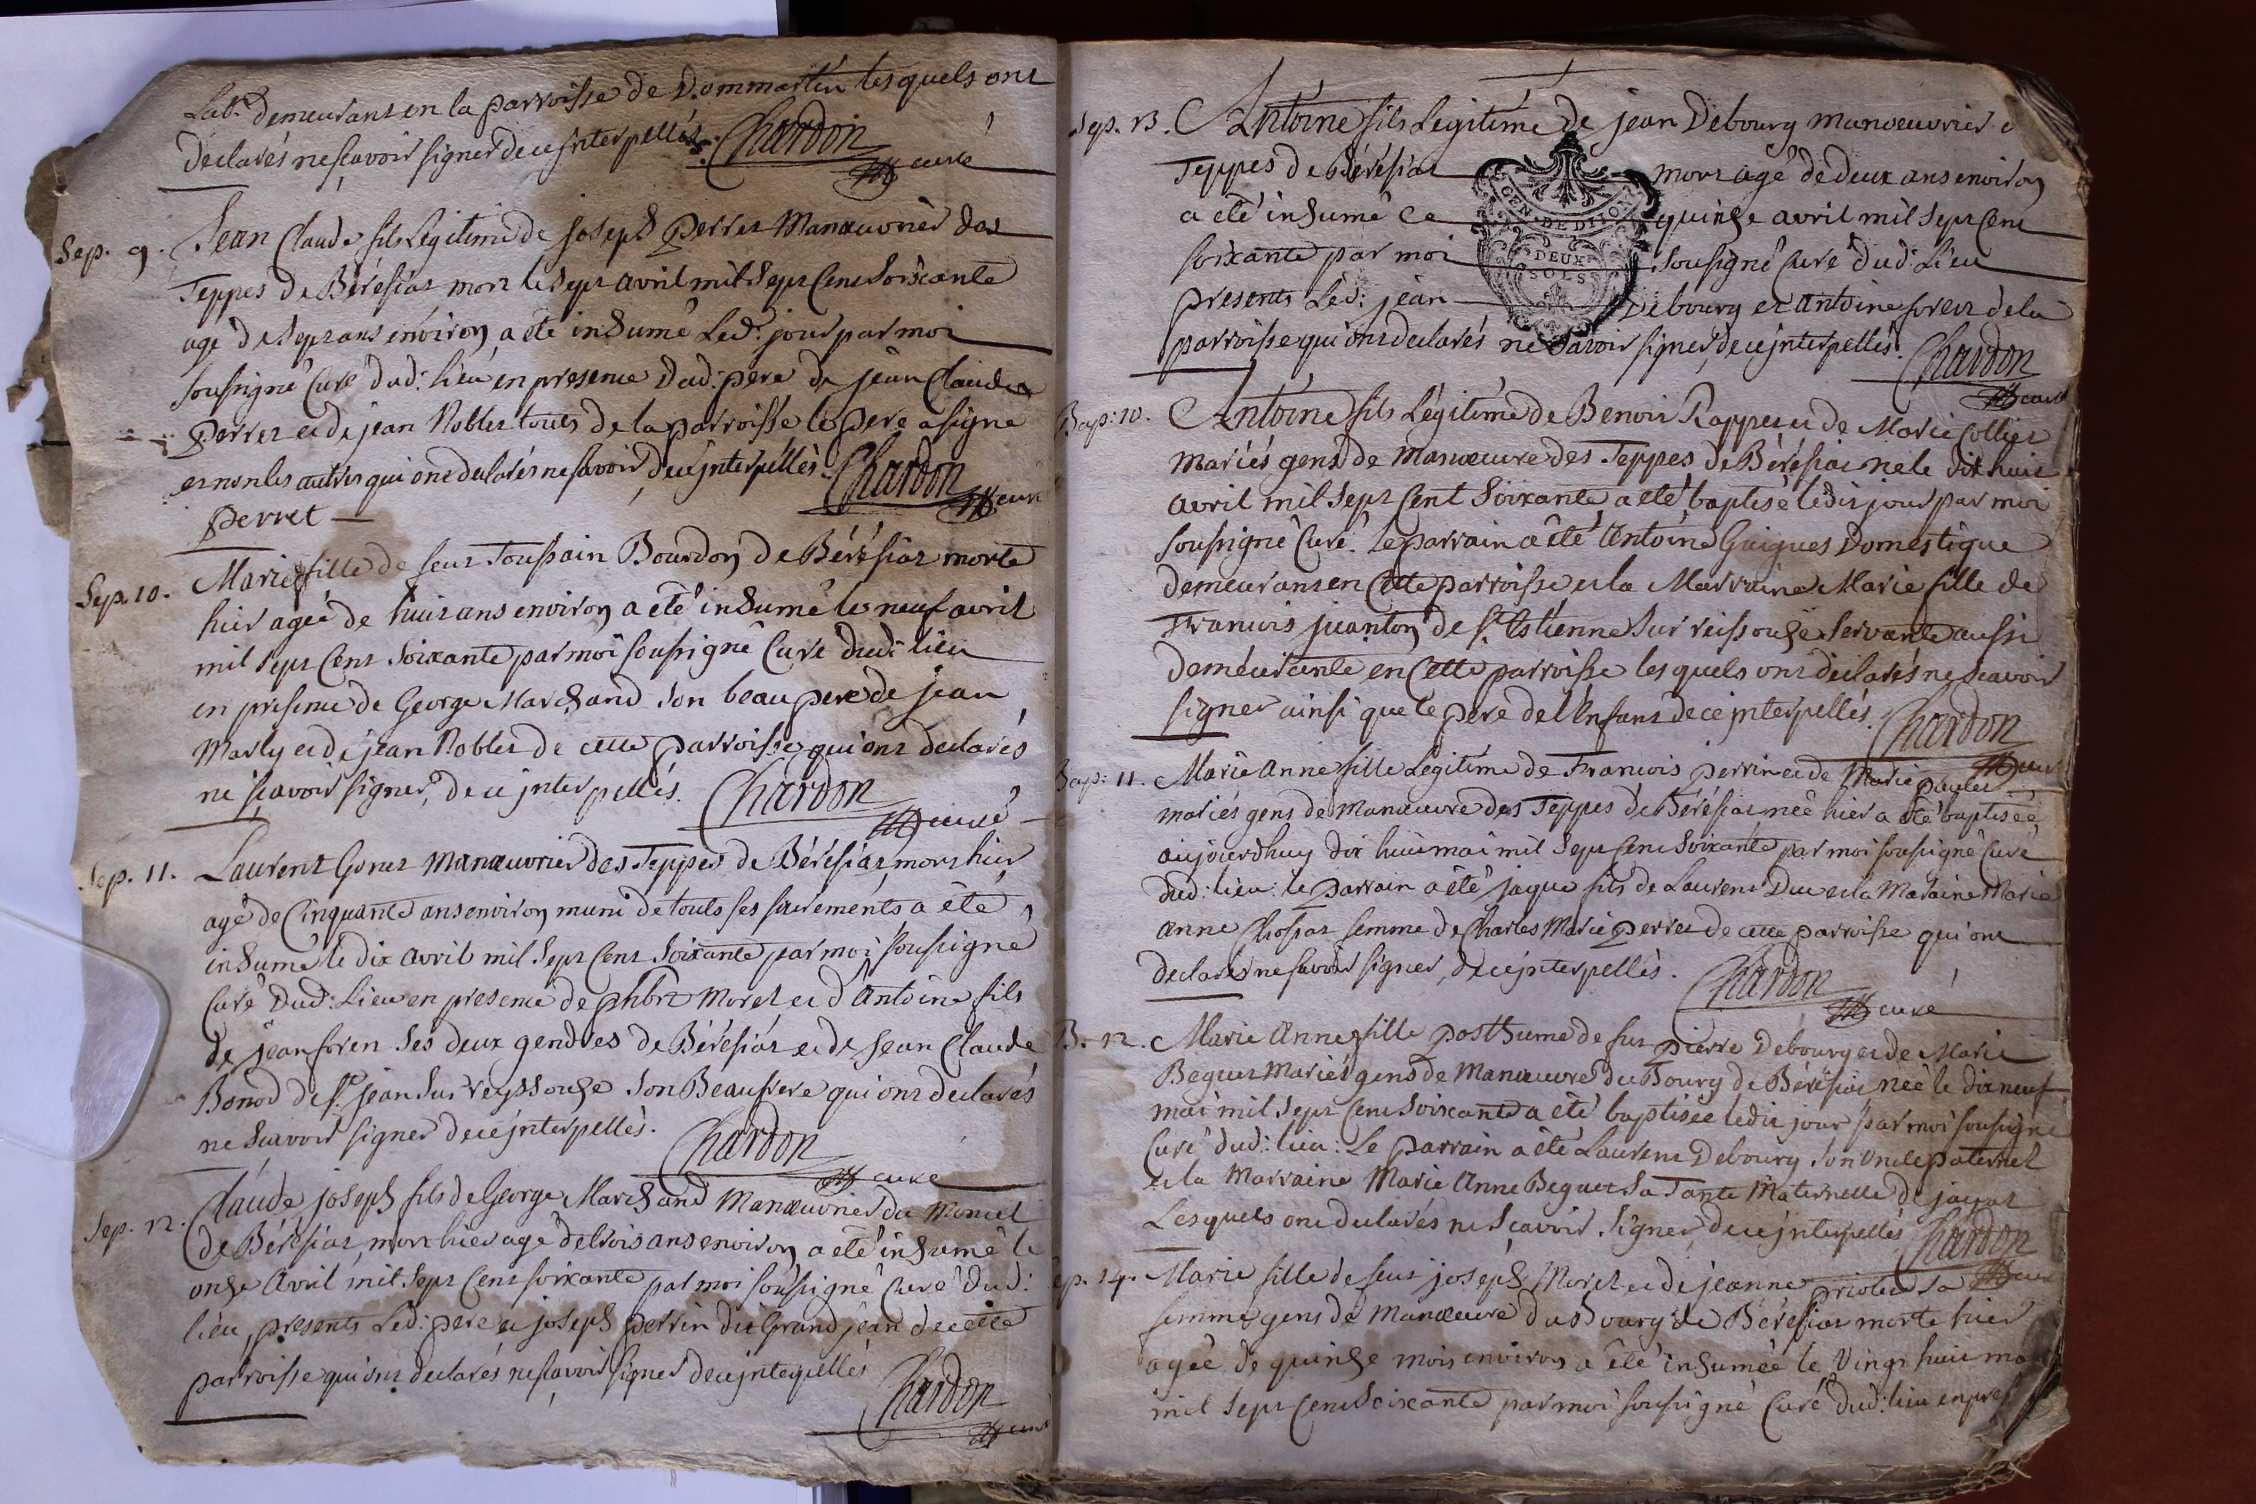 Lab.r demeurans en la parroisse de Dommartin lesquels ont
déclarés ne scavoir signer de ce jnterpellés. Chardon
curé
Sep. 9. Jean Claude fils Légitime de joseph perret Manœuvrier des
Teppes de Bérésiat mort le sept avril mil sept Cent soixante
agé de sept ans environ a été inhumé Led: jour par moi
soussigné Curé dud: lieu en presence dud: pere de jean Claude
perret et de jean Noblet touts de la parroisse le pere a signé
et non les autres qui ont declarés ne savoir, de ce jnterpellés. Chardon
curé
perret
Sep. 10. Marie fille de feut Toussain Bourdon de Bérésiat morte
hier ageé de huit ans environ a été inhumé le neuf avril
mil sept Cent soixante par moi soussigné Curé dud: lieu
en presence de George Marchand son beau pere de jean
Marly et de jean Noblet de cette parroisse qui ont declarés
ne scavoir signer, de ce jnterpellés. Chardon
curé
Sep. 11. Laurent Gonet Manœuvrier des Teppes de Bérésiat, mort hier
agé de Cinquante ans environ muni de touts ses sacrements a été
inhumé le dix avril mil sept Cent soixante par moi soussigné
Curé dud: Lieu en presence de phbrt Morel et d'Antoine fils
de jean foren ses deux gendres de Bérésiat et de jean Claude
Bonod de st. jean sur reyssouze son Beaufrere qui ont declarés
ne scavoir signer de ce jnterpellés. Chardon
curé
Sep. 12. Claude joseph fils de George Marchand Manœuvrier du Moncel
de Bérésiat, mort hier agé de trois ans environ a été inhumé le
onze Avril mil sept Cent soixante par moi soussigné Curé dud:
lieu, presents Led: pere et joseph perrin dit Grand jean de cette
parroisse qui ont declarés ne scavoir signer de ce jnterpellés
Chardon
curé
Sep. 13. Antoine fils Légitime de jean Debourg manœuvrier
Teppes de Bérésiat mort agé de deux ans environ
a été inhumé Ce quinze avril mil sept Cent
soixante par moi soussigné Curé dud: Lieu
presents Led: jean Debourg et antoine foreur de la
parroisse qui ont declarés ne savoir signer, de ce jnterpellés. Chardon
curé
GEN. DE DIJON
DEUX
SOLS
Bap: 10. Antoine fils Légitime de Benoit Rappet et de Marie Collier
Mariés gens de Manœuvre des Teppes de Bérésiat né le dix huit
avril mil sept Cent soixante a été baptisé ledit jour par moi
soussigné Curé. Le parrain a été Antoine Guigues Domestique
demeurans en Cette parroisse et la Marraine Marie fille de
Francois juanton de st. Estienne sur reissouze servante aussi
demeurante en Cette parroisse lesquels ont déclarés ne scavoir
signer ainsi que le pere de l'Enfant de ce jnterpellés. Chardon
curé
Bap: 11. Marie Anne fille Légitime de Francois perrin et de Marie paulet
mariés gens de Manœuvre des Teppes de Bérésiat néé hier a été baptiséé
aujourdhuy dix huit mai mil sept Cent soixante par moi soussigné Curé
dud: lieu: le parrain a été jaque fils de Laurent Duc et la Maraine Marie
anne Chossat femme de Charles Marie perret de cette parroisse qui ont
declarés ne savoir signer, de ce jnterpellés. Chardon
curé
B. 12. Marie Anne fille posthume de fut pierre Debourg et de Marie
Beguet Mariés gens de Manœuvre du Bourg de Bérésiat néé le dix neuf
mai mil sept Cent soixante a été baptisée ledit jour par moi soussigné
Curé dud: lieu: Le parrain a été Laurent Debourg son oncle paternel
et la Marraine Marie Anne Beguet sa Tante Maternelle de jayat
Lesquels ont declarés ne scavoir signer de ce jnterpellés Chardon
curé
Sep. 14. Marie fille de feut joseph Morel et de jeanne priolet sa
femme gens de Manœuvre du Bourg de Bérésiat morte hier
agéé de quinze mois environ a été inhuméé le Vingt huit mai
mil sept Cent soixante par moi soussigné Curé dud: lieu en pres